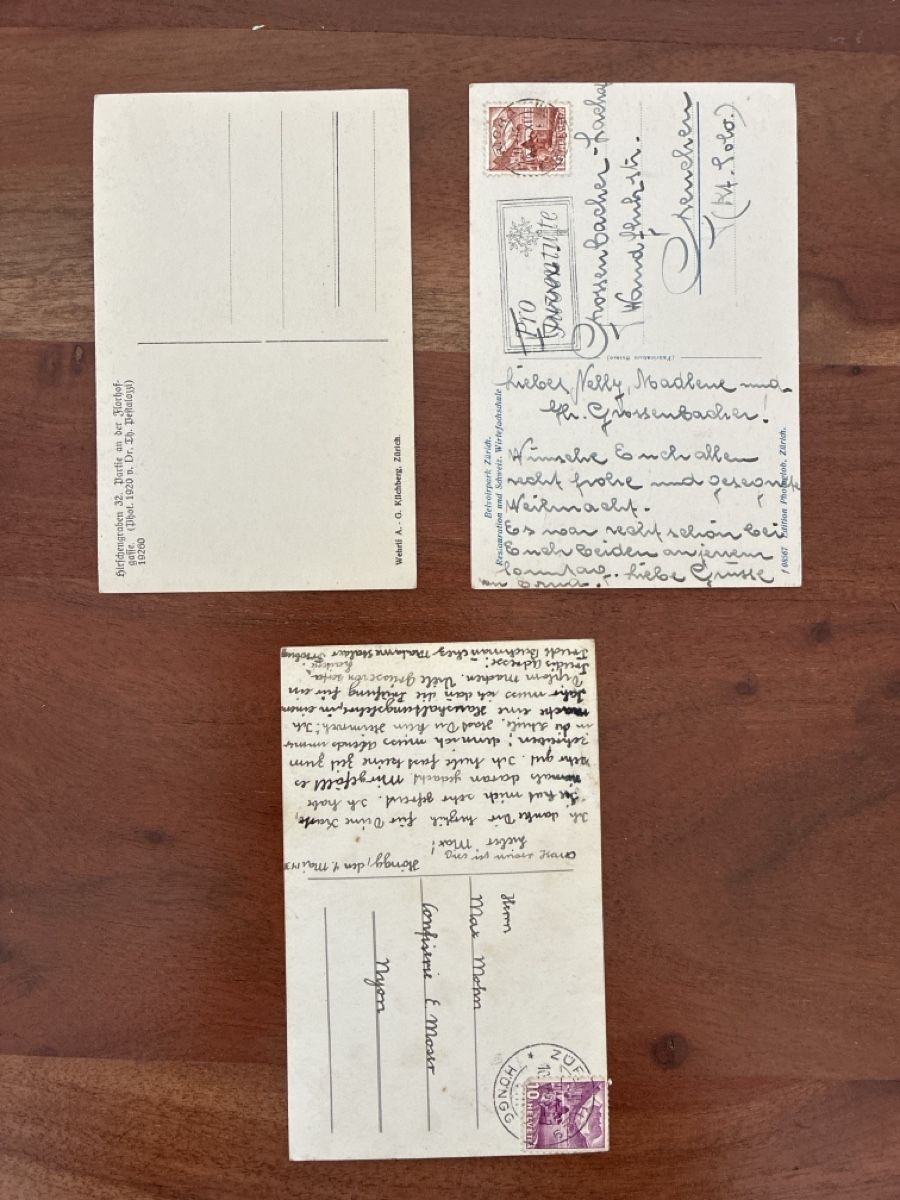 Hirschengraben 32. Partie an der Florhof-
gasse. (Phot. 1920 v. Dr. Th. Pestalozzi)
19260
Wehrli A.-G. Kilchberg, Zürich.
HELVETIA
Pro
Juventute
Grossenbacher-
Grenchen
(Kt. Solo.)
(Fabrication Suisse)
Belvoirpark Zürich.
Restauration und Schweiz. Wirtefachschule
Lieber Nelly, Madlene und
Fr. Grossenbacher!
Wünsche Euch allen
recht frohe und gesegnete
Weihnacht.
Es war recht schön bei
Euch beiden an jenem
Sonntag. Liebe Grüsse
f 08567 Edition Photoglob, Zürich.
Höngg, den 9. Mai
Lieber Max!
Ich danke Dir herzlich für Deine Karte,
Sie hat mich sehr gefreut. Ich habe
niemals daran gedacht. Mir gefällt es
sehr gut. Ich habe fast keine Zeit zum
schreiben, denn ich muss Abends immer
in die Schule. Hast Du kein Heimweh? Ich
mache eine Haushaltungslehre, in einem
Jahr muss ich dan die Prüfung für ein
Diplom machen. Viele Grüsse von
Trudis Adresse:
Trudi chez Madame
Herrn
Max Mohn
Confiserie E. Moser
Nyon
ZÜR
HÖNGG
10 HELVETIA